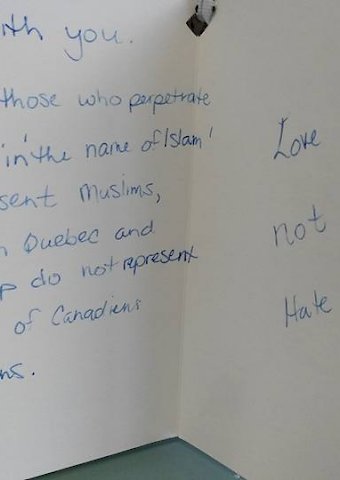 ith you.
those who perpetrate
'in the name of Islam'
sent Muslims,
n Quebec and
p do not represent
of Canadiens
ns.
Love
not
Hate